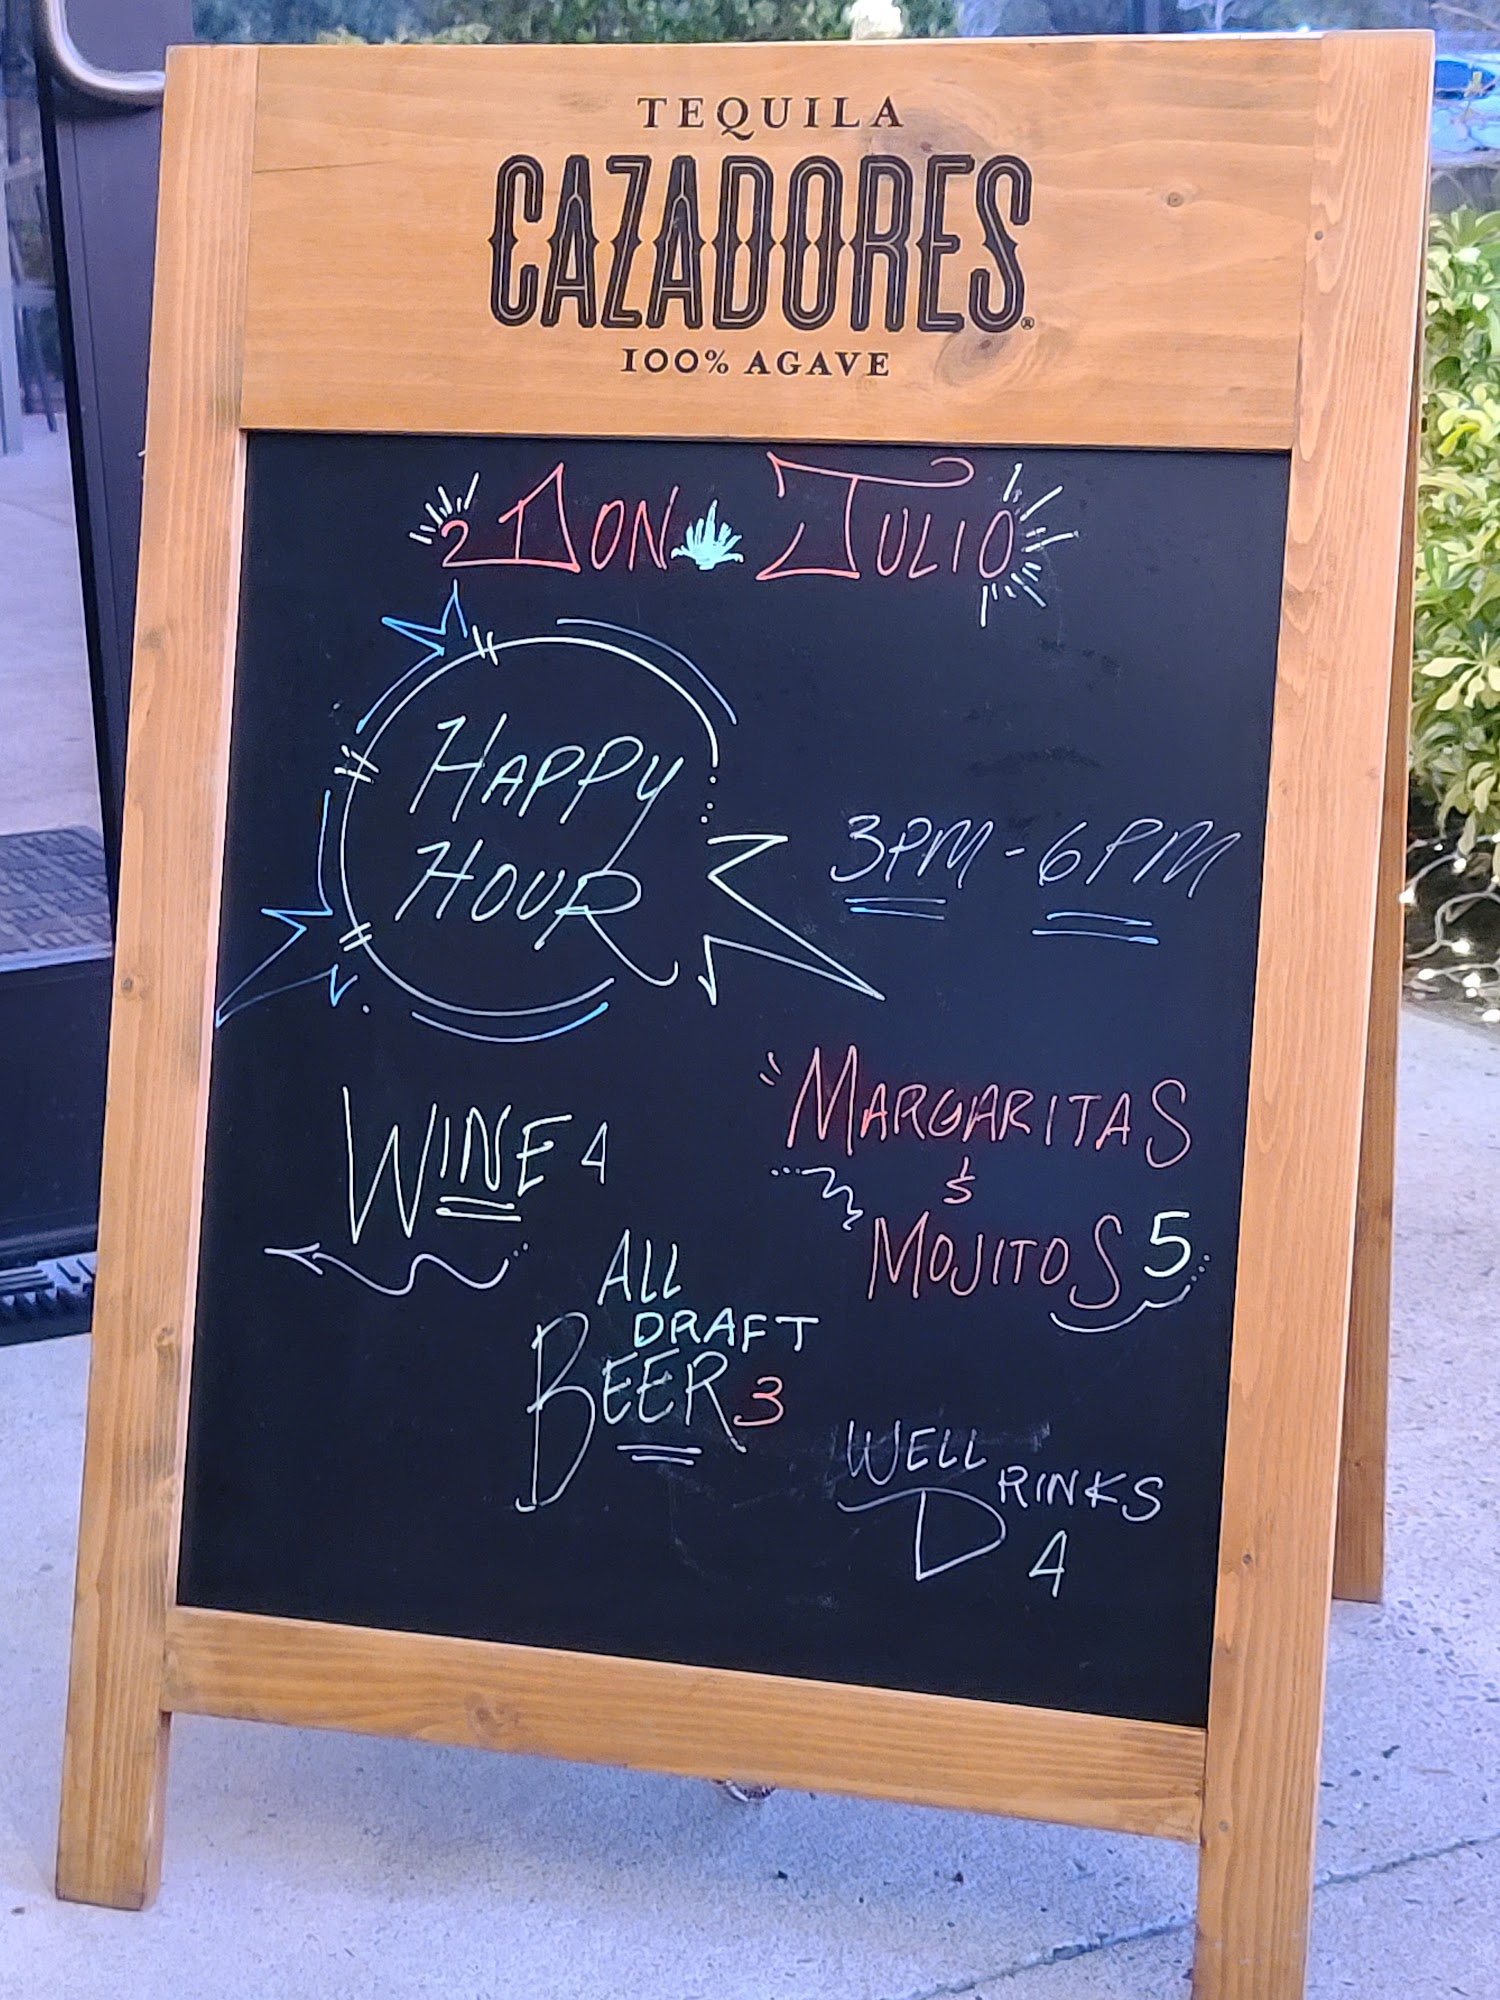 TEQUILA
CAZADORES®
100% AGAVE
DON JULIO
HAPPY
HOUR
3PM - 6PM
WINE 4
MARGARITAS
&
MOJITOS 5
ALL
DRAFT
BEER 3
WELL
DRINKS
4